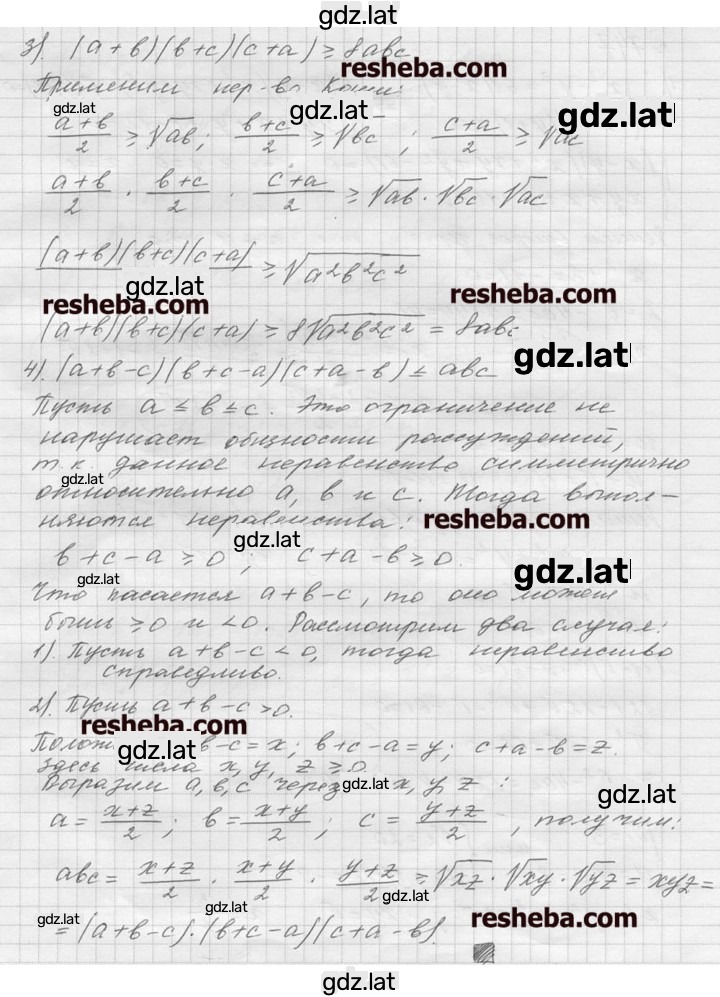 gdz.lat
3). (a+b)(b+c)(c+a) ≥ 8abc
resheba.com
Применим нер-во Коши:
gdz.lat
gdz.lat
(a+b)/2 ≥ √ab; (b+c)/2 ≥ √bc; (c+a)/2 ≥ √ac
(a+b)/2 · (b+c)/2 · (c+a)/2 ≥ √ab · √bc · √ac
(a+b)(b+c)(c+a) ≥ √a²b²c²
gdz.lat
resheba.com
resheba.com
(a+b)(b+c)(c+a) ≥ 8√a²b²c² = 8abc
gdz.lat
4). (a+b-c)(b+c-a)(c+a-b) ≤ abc
Пусть a ≤ b ≤ c. Это ограничение не
нарушает общности рассуждений,
т.к. данное неравенство симметрично
gdz.lat
относительно a, b и c. Тогда выпол-
няются неравенства:
resheba.com
gdz.lat
b+c-a ≥ 0; c+a-b ≥ 0.
gdz.lat
gdz.lat
Что касается a+b-c, то оно может
быть ≥0 и <0. Рассмотрим два случая:
1). Пусть a+b-c < 0, тогда неравенство
справедливо.
2). Пусть a+b-c >0.
resheba.com
gdz.lat
b-c=x; b+c-a=y; c+a-b=z.
Здесь числа x, y, z ≥ 0
Выразим a, b, c через x, y, z:
gdz.lat
gdz.lat
a = (x+z)/2; b = (x+y)/2; c = (y+z)/2, получим:
abc = (x+z)/2 · (x+y)/2 · (y+z)/2 ≥ √xz · √xy · √yz = xyz =
gdz.lat
gdz.lat
gdz.lat
resheba.com
= (a+b-c)·(b+c-a)(c+a-b).
gdz.lat